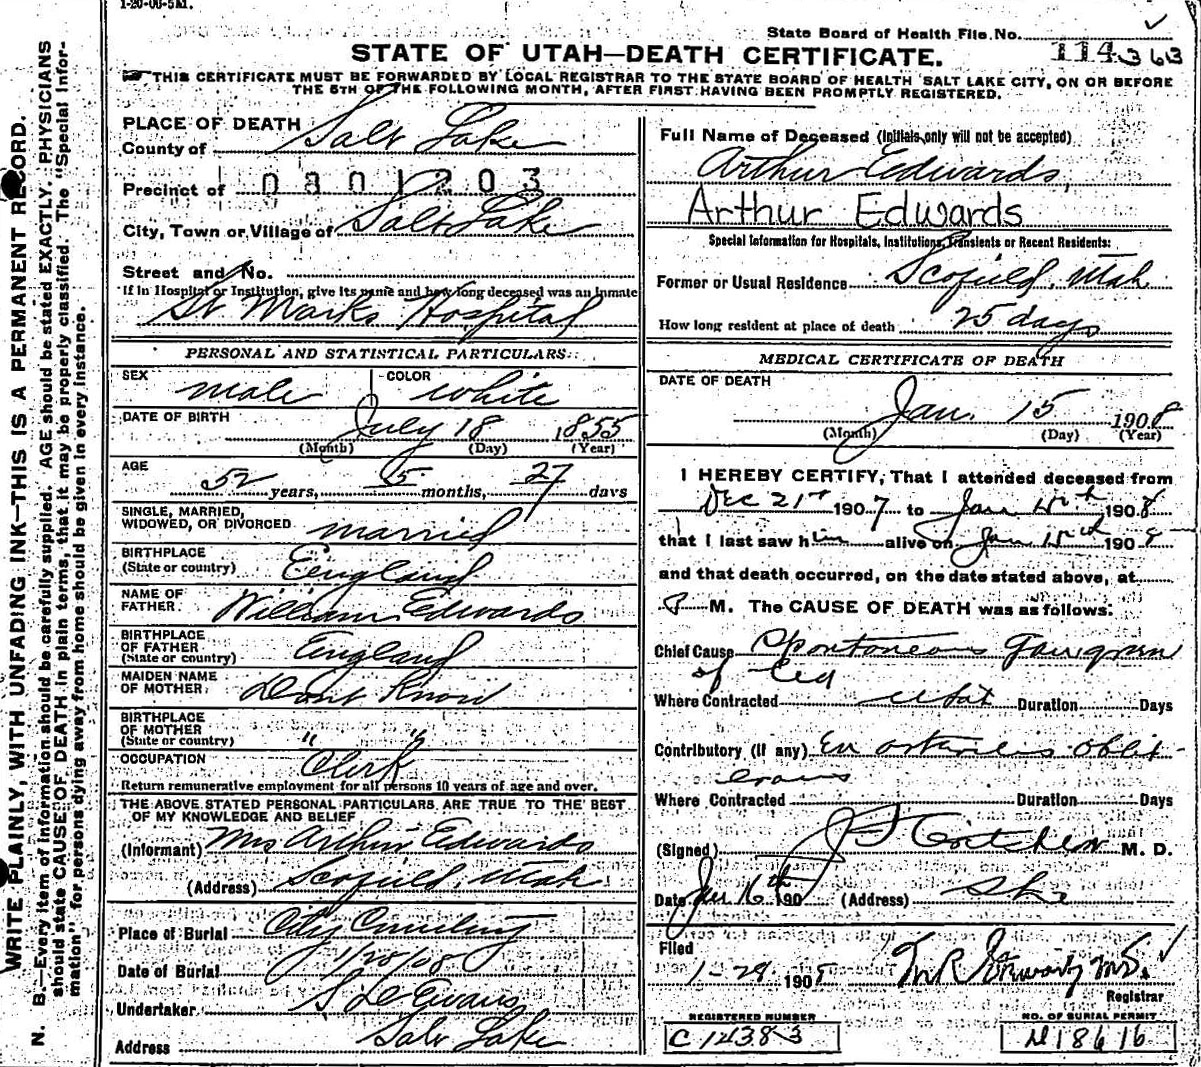 1-20-06-5M.
State Board of Health File No. 114363
STATE OF UTAH—DEATH CERTIFICATE.
THIS CERTIFICATE MUST BE FORWARDED BY LOCAL REGISTRAR TO THE STATE BOARD OF HEALTH SALT LAKE CITY, ON OR BEFORE
THE 5TH OF THE FOLLOWING MONTH, AFTER FIRST HAVING BEEN PROMPTLY REGISTERED.
WRITE PLAINLY, WITH UNFADING INK—THIS IS A PERMANENT RECORD.
N. B.—Every item of information should be carefully supplied. AGE should be stated EXACTLY. PHYSICIANS
should state CAUSE OF DEATH in plain terms, that it may be properly classified. The "Special Infor-
mation" for persons dying away from home should be given in every instance.
PLACE OF DEATH
County of Salt Lake
Precinct of 0801203
City, Town or Village of Salt Lake
Street and No.
If in Hospital or Institution, give its name and how long deceased was an inmate
St Marks Hospital
PERSONAL AND STATISTICAL PARTICULARS:
SEX male COLOR white
DATE OF BIRTH July 18 1855
(Month) (Day) (Year)
AGE 52 years, 5 months, 27 days
SINGLE, MARRIED,
WIDOWED, OR DIVORCED married
BIRTHPLACE
(State or country) England
NAME OF
FATHER William Edwards
BIRTHPLACE
OF FATHER
(State or country) England
MAIDEN NAME
OF MOTHER Dont Know
BIRTHPLACE
OF MOTHER
(State or country) " "
OCCUPATION Clerk
Return remunerative employment for all persons 10 years of age and over.
THE ABOVE STATED PERSONAL PARTICULARS ARE TRUE TO THE BEST
OF MY KNOWLEDGE AND BELIEF
(Informant) Mrs Arthur Edwards
(Address) Scofield, Utah
Place of Burial City Cemetery
Date of Burial 1/28/08
Undertaker S D Evans
Address Salt Lake
Full Name of Deceased (Initials only will not be accepted)
Arthur Edwards,
Arthur Edwards
Special Information for Hospitals, Institutions, Transients or Recent Residents:
Former or Usual Residence Scofield, Utah
How long resident at place of death 25 days
MEDICAL CERTIFICATE OF DEATH
DATE OF DEATH
Jan. 15 1908
(Month) (Day) (Year)
I HEREBY CERTIFY, That I attended deceased from
Dec 21st 1907 to Jan 15th 1908
that I last saw him alive on Jan 15th 1908
and that death occurred, on the date stated above, at
P M. The CAUSE OF DEATH was as follows:
Chief Cause Spontaneous Gangreen
of Leg
Where Contracted Utah Duration Days
Contributory (if any) obliter-
ans
Where Contracted Duration Days
(Signed) J F Critchlow M. D.
Date Jan 16th 190 (Address) Slke
Filed
1-28 1908 M.D.
Registrar
REGISTERED NUMBER
C 14383
NO. OF BURIAL PERMIT
D18616